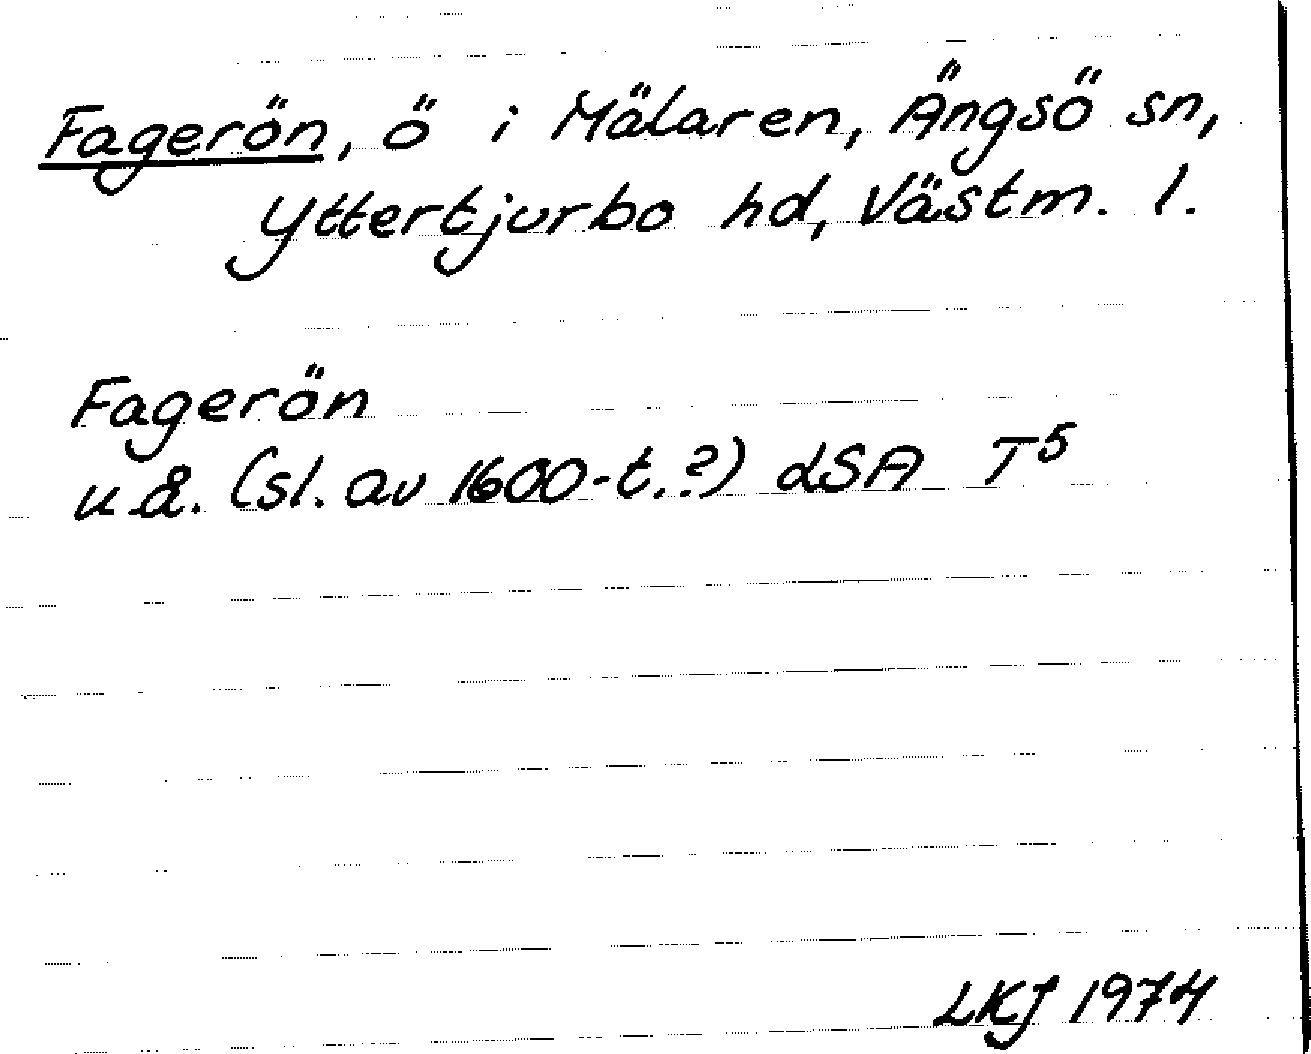 Fagerön, ö i Mälaren, Ängsö sn,
Yttertjurbo hd, Västm. l.
Fagerön
u.å. (sl. av 1600-t.?) LSA T5
LKJ 1974